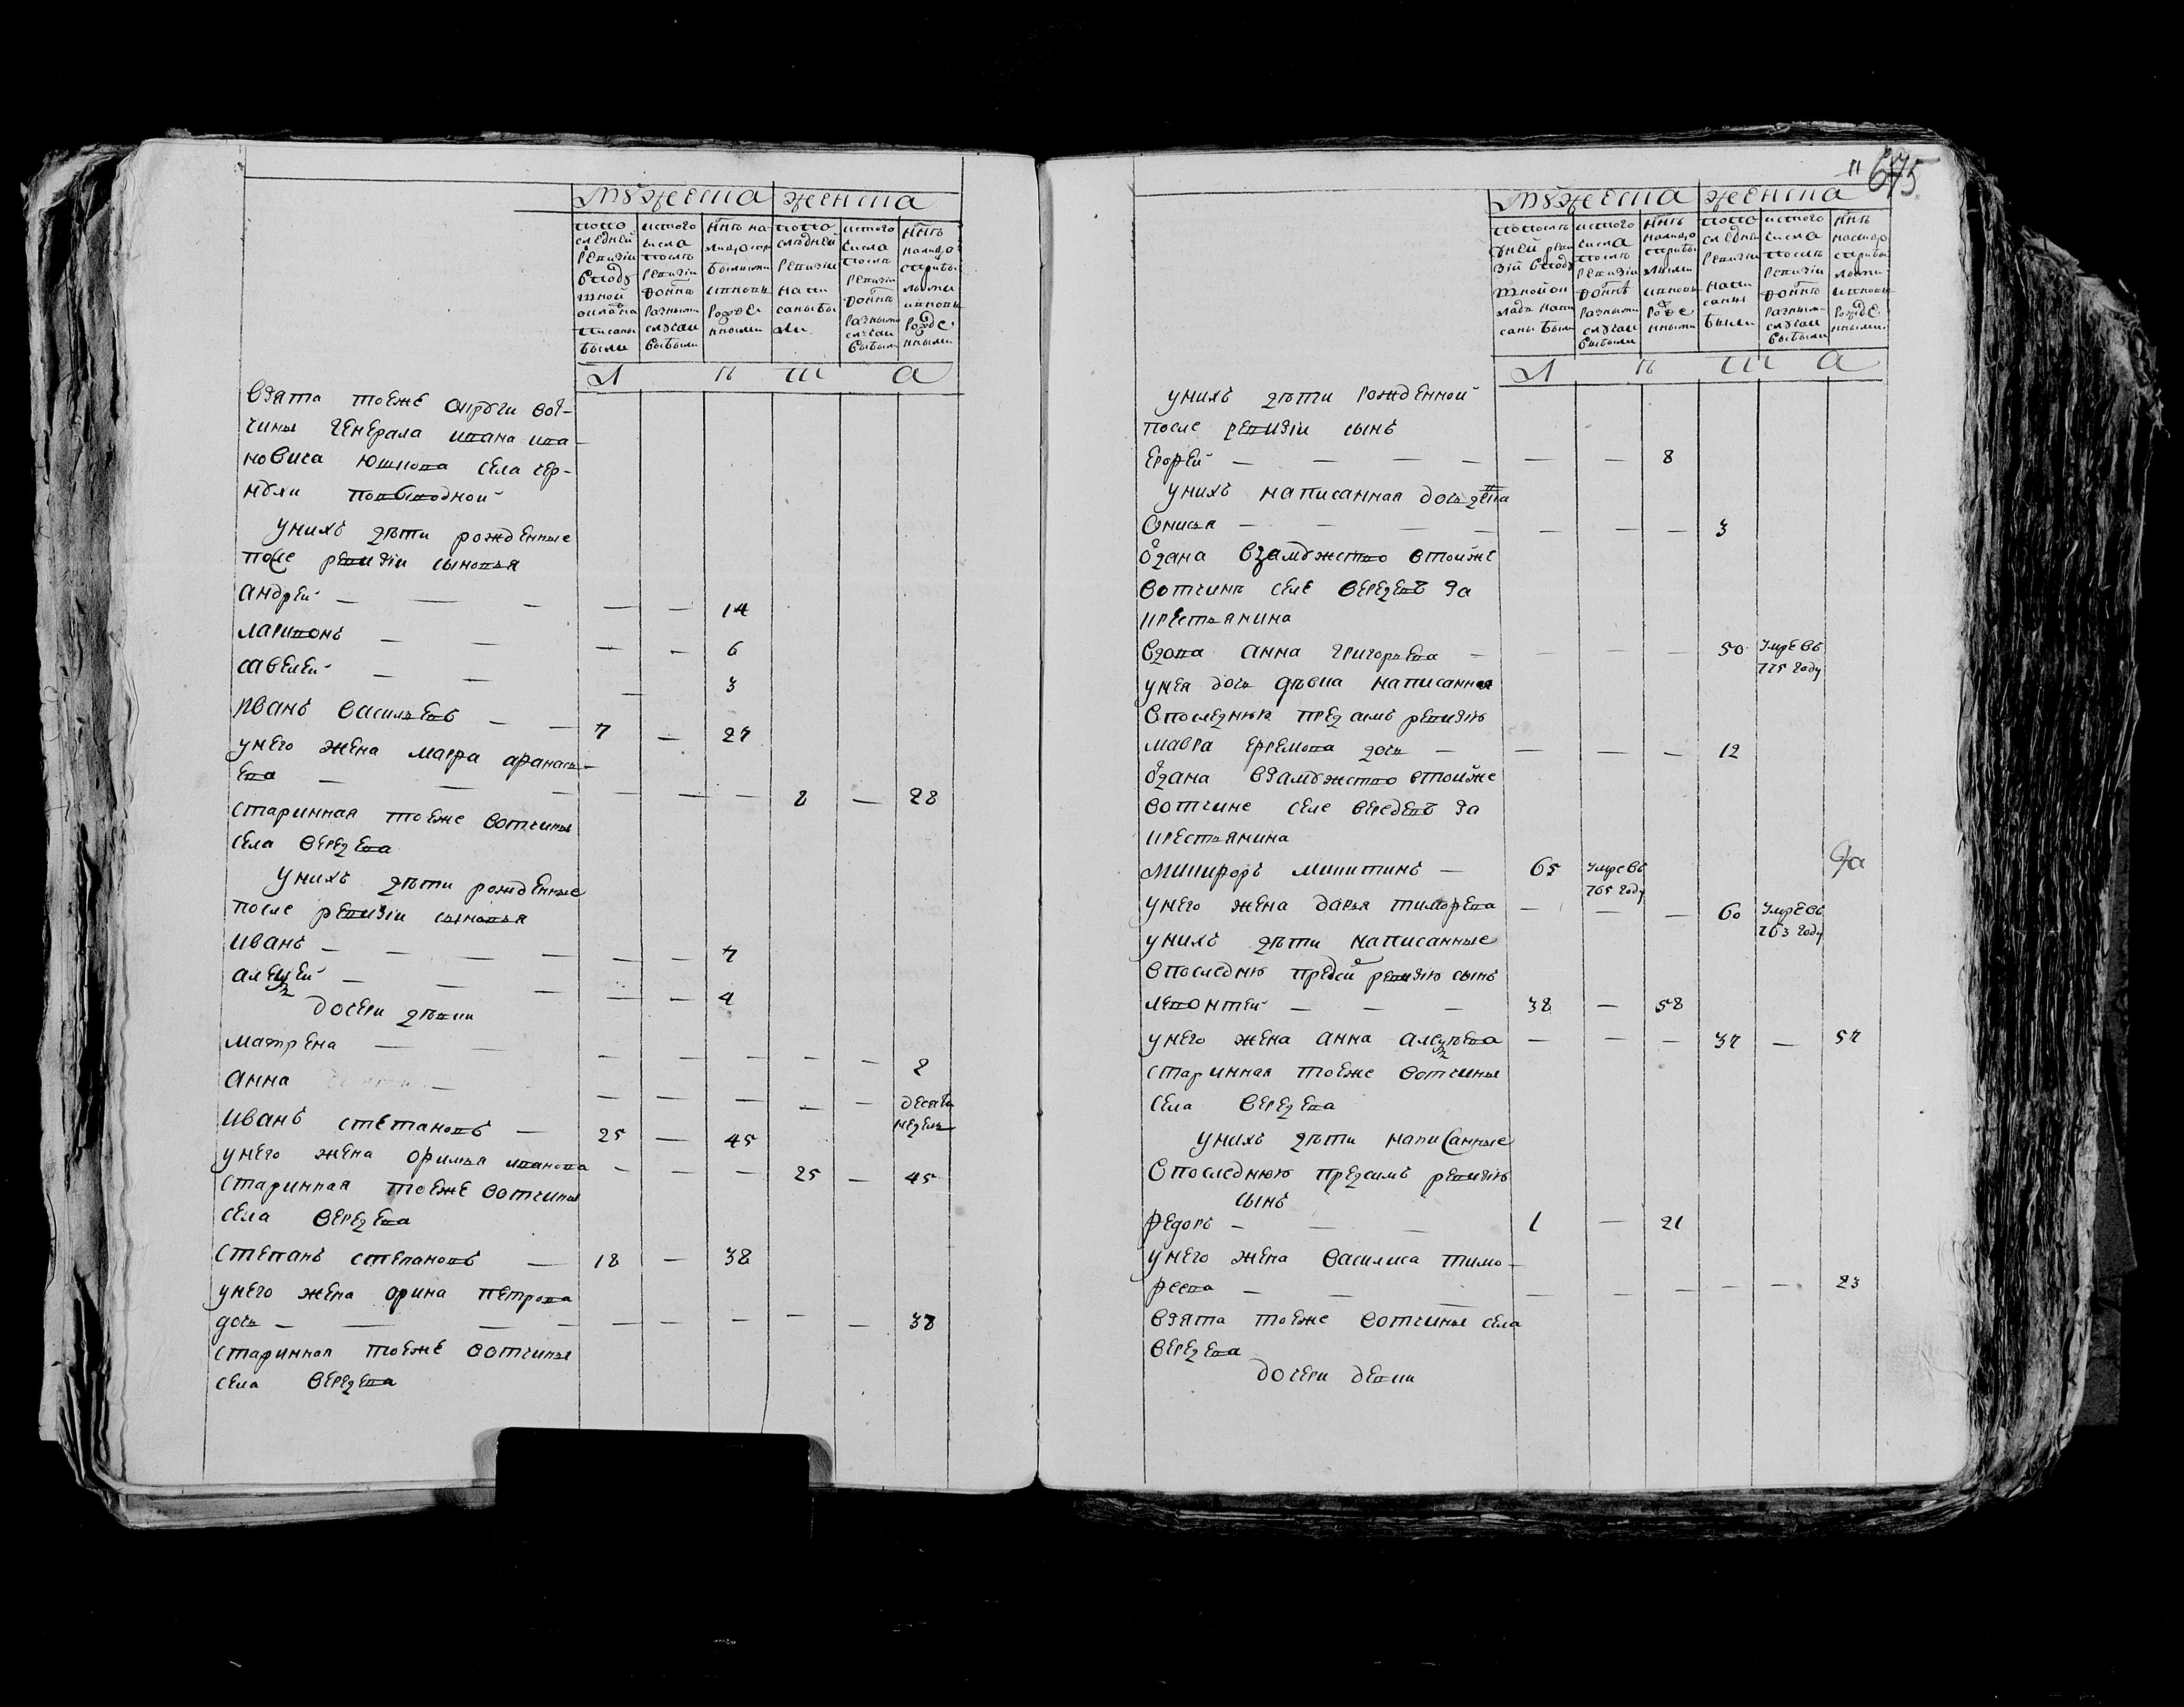 мужеска женска
поло следней ревизiи в подушной окладъ писаны были
ис того числа после ревизiи до ннѣ разными случаи выбыли
ннѣ на лицо с прибылыми и вновь рожденными
по последней ревизiи написаны были
ис того числа после ревизiи до ннѣ разными случаи выбыли
ннѣ на лицо с прибылыми и вновь рожденными
л ѣ т а
взята тоеже округи вот-
чины генерала ивана ива-
новича Юшкова села чер-
по выводной
у нихъ дѣти рожденные
после ревизiи сыновья
андрей — — — — — 14
ларивонъ — — — — 6
савелей — — — 3
Иванъ васильевъ — — 7 — 27
у него жена мавра афанась-
ева — — — — — — 8 — 28
старинная тоеже вотчины
села верезева
У нихъ дѣти рожденные
после ревизiи сыновья
иванъ — — — — — — 7
алексѣй — — — — — 4
дочери дѣвки
матрена — — — — — — — — 2
анна — — — — — — десять недель
иванъ степановъ — 25 — 45
у него жена офимья иванова — — — 25 — 45
старинная тоеже вотчины
села верезева
степанъ степановъ — 18 — 38
у него жена орина петрова
дочь — — — — — — — — — 38
старинная тоеже вотчины
села верезева
11 675
мужеска женска
по последней ревизiй в подушной окладъ написаны были
ис того числа после ревизiи до ннѣ разными случаи выбыли
ннѣ на лицо с прибылыми и вновь рожденными
по последней ревизiи написаны были
ис того числа после ревизiи до ннѣ разными случаи выбыли
ннѣ на лицо с прибылыми и вновь рожденными
л ѣ т а
у нихъ дѣти рожденной
после ревизiи сынъ
Егорей — — — — — — 8
у нихъ написанная дочь девка
— — — — — — — 3
отдана взамужство втойже
вотчинѣ селе верезевъ за
крестьянина
вдова анна григорьева — — — — 50 умре въ 775 году
у нея дочь дѣвка написанная
в последнюю предъ симъ ревизiю
мавра еремова дочь — — — — 12
отдана взамужство втойже
вотчине селе вередевъ за
крестьянина
микифоръ микитинъ — 65 умре въ 765 году
у него жена дарья тимофева — — — 60 умре въ 763 году
у нихъ дѣти написанные
в последню пред сей ревизiю сынъ
левонтей — — — 38 — 58
у него жена анна алексѣева — — — 37 — 57
старинная тоеже вотчины
села верезева
у нихъ дѣти написанные
в последнюю предъ симъ ревизiю
сынъ
федоръ — — — 1 — 21
у него жена василиса тимо-
феева — — — — — — — — 23
взята тоеже вотчины села
верезева
дочери девки